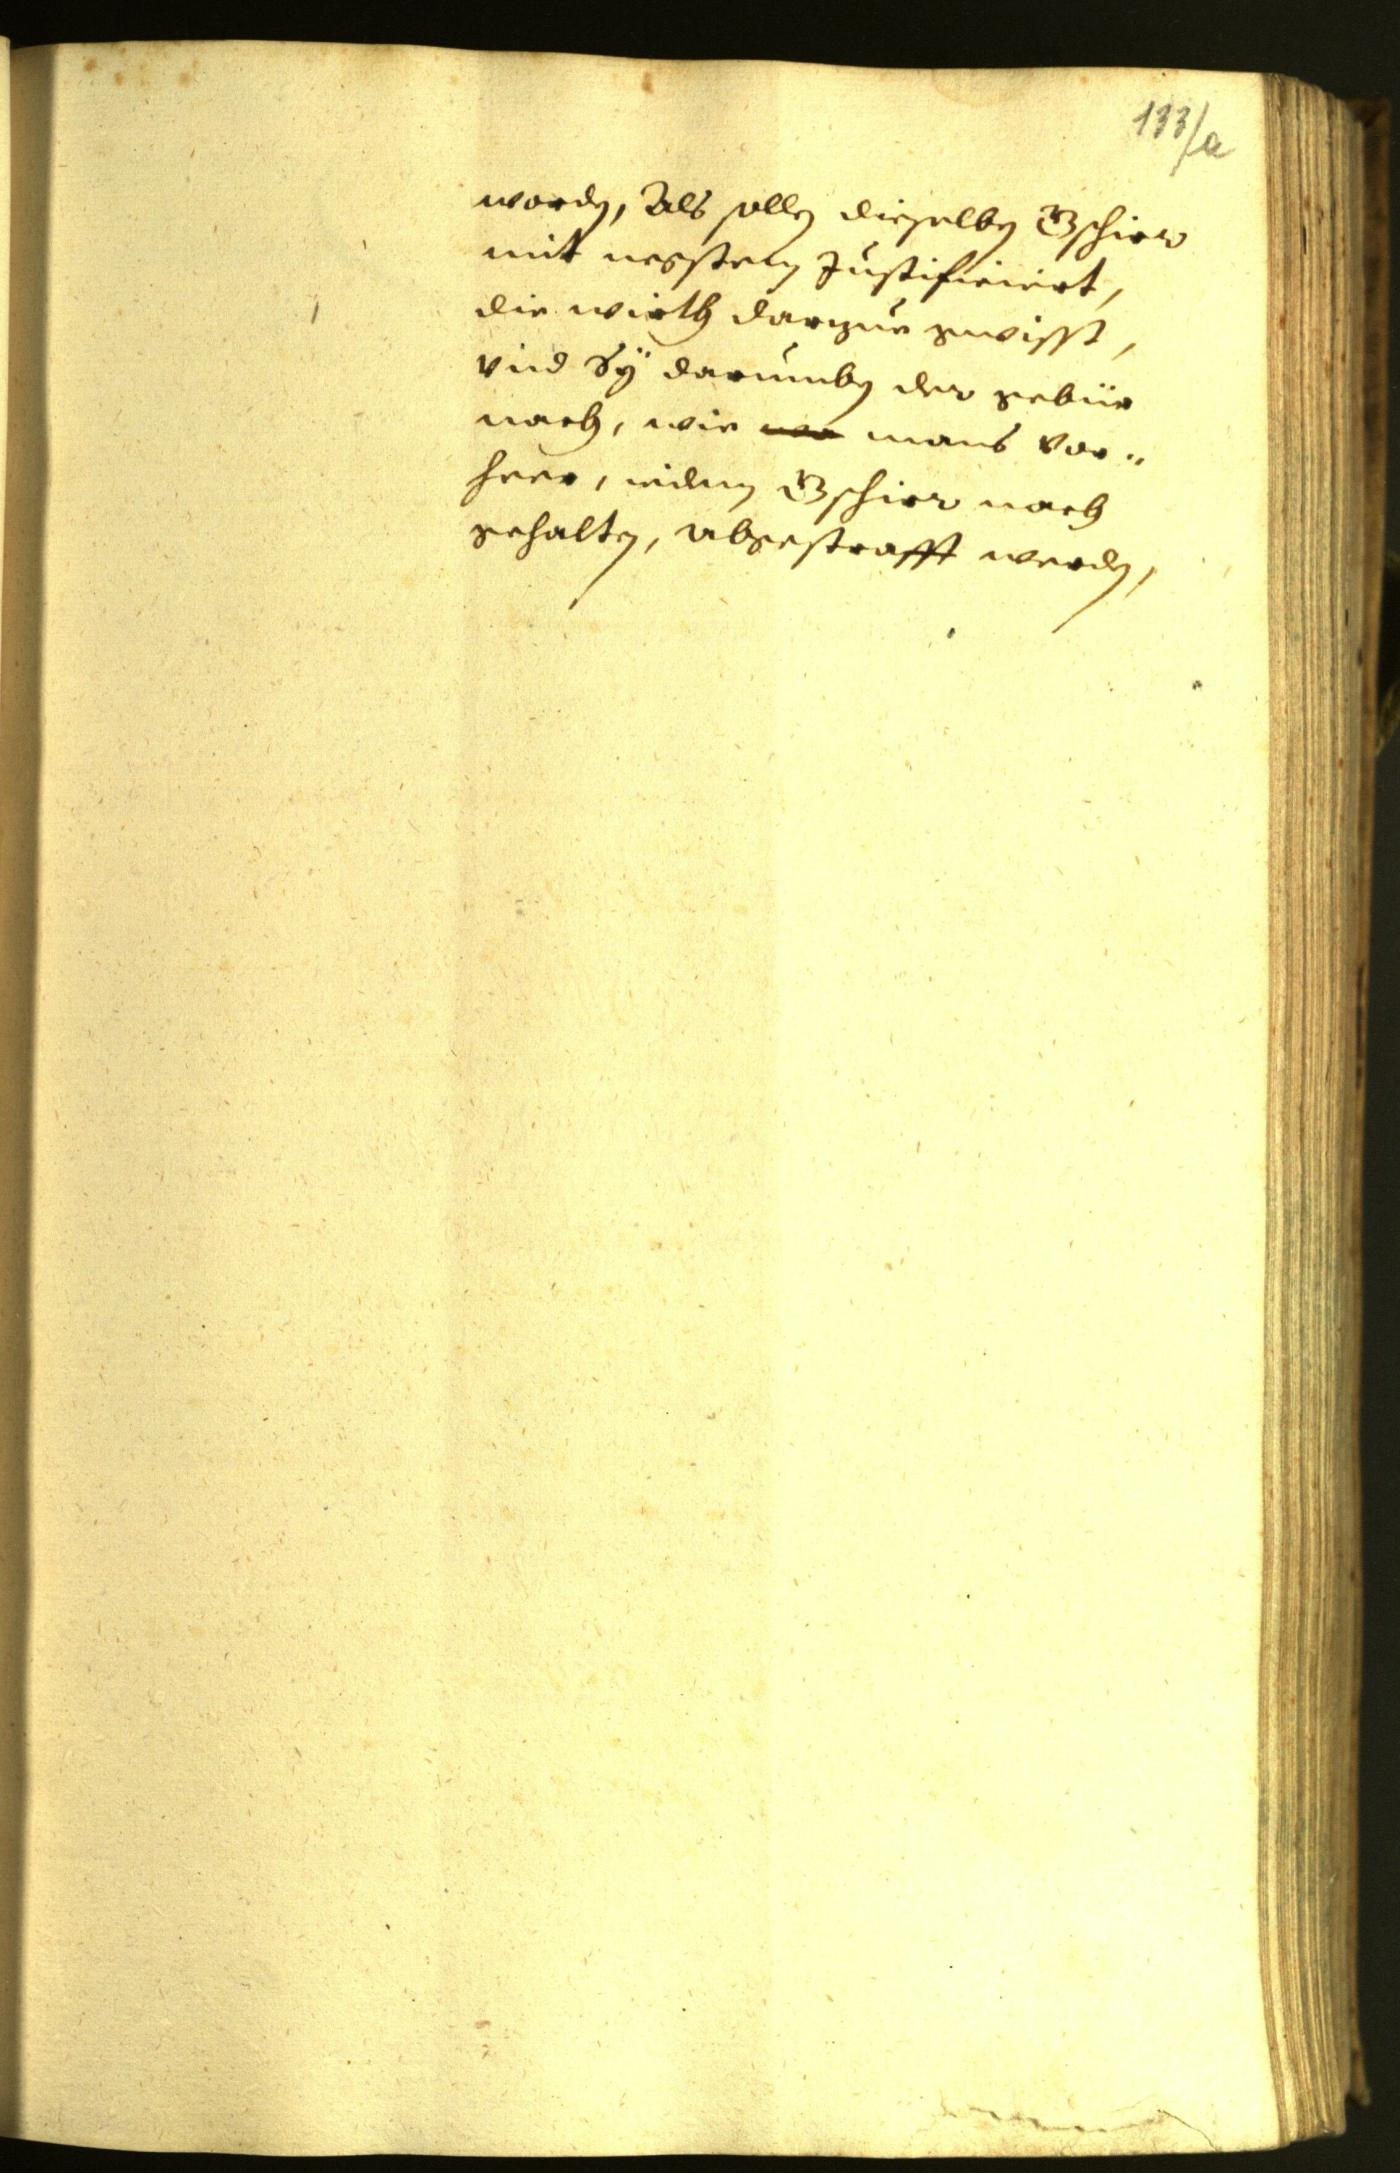 133/a
worden, Als sollen dieselben Gschirr
mit nechstem Justificiert,
die wirth darzue gewisst,
vnd Sÿ darumben der gebür
nach, wie mans vor"
heer, iedem Gschirr nach
gehalten, abgestrafft werden,